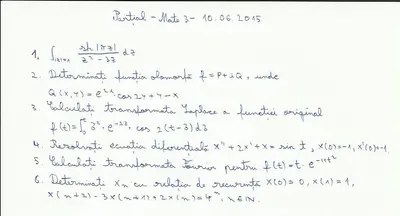 Parțial - Mate 3 - 10.06.2015
1. ∫|z|=1 sh|πz| / z² - 3z dz
2. Determinați funția olomorfă f = P + iQ, unde
Q(x,y) = e^{2x} · cos 2y + y - x
3. Calculați transformata Laplace a funției original
f(t) = ∫ 3² · e^{-23} · cos 2(t-3) d3
4. Rezolvați ecuația diferențială x'' + 2x' + x = sin t, x(0)=-1, x'(0)=-1.
5. Calculați transformata Fourier pentru f(t) = t · e^{-πt²}
6. Determinați Xn cu relația de recurență X(0) = 0, X(1) = 1,
x(n+2) - 3x(n+1) + 2x(n) = 4^n, n∈N.